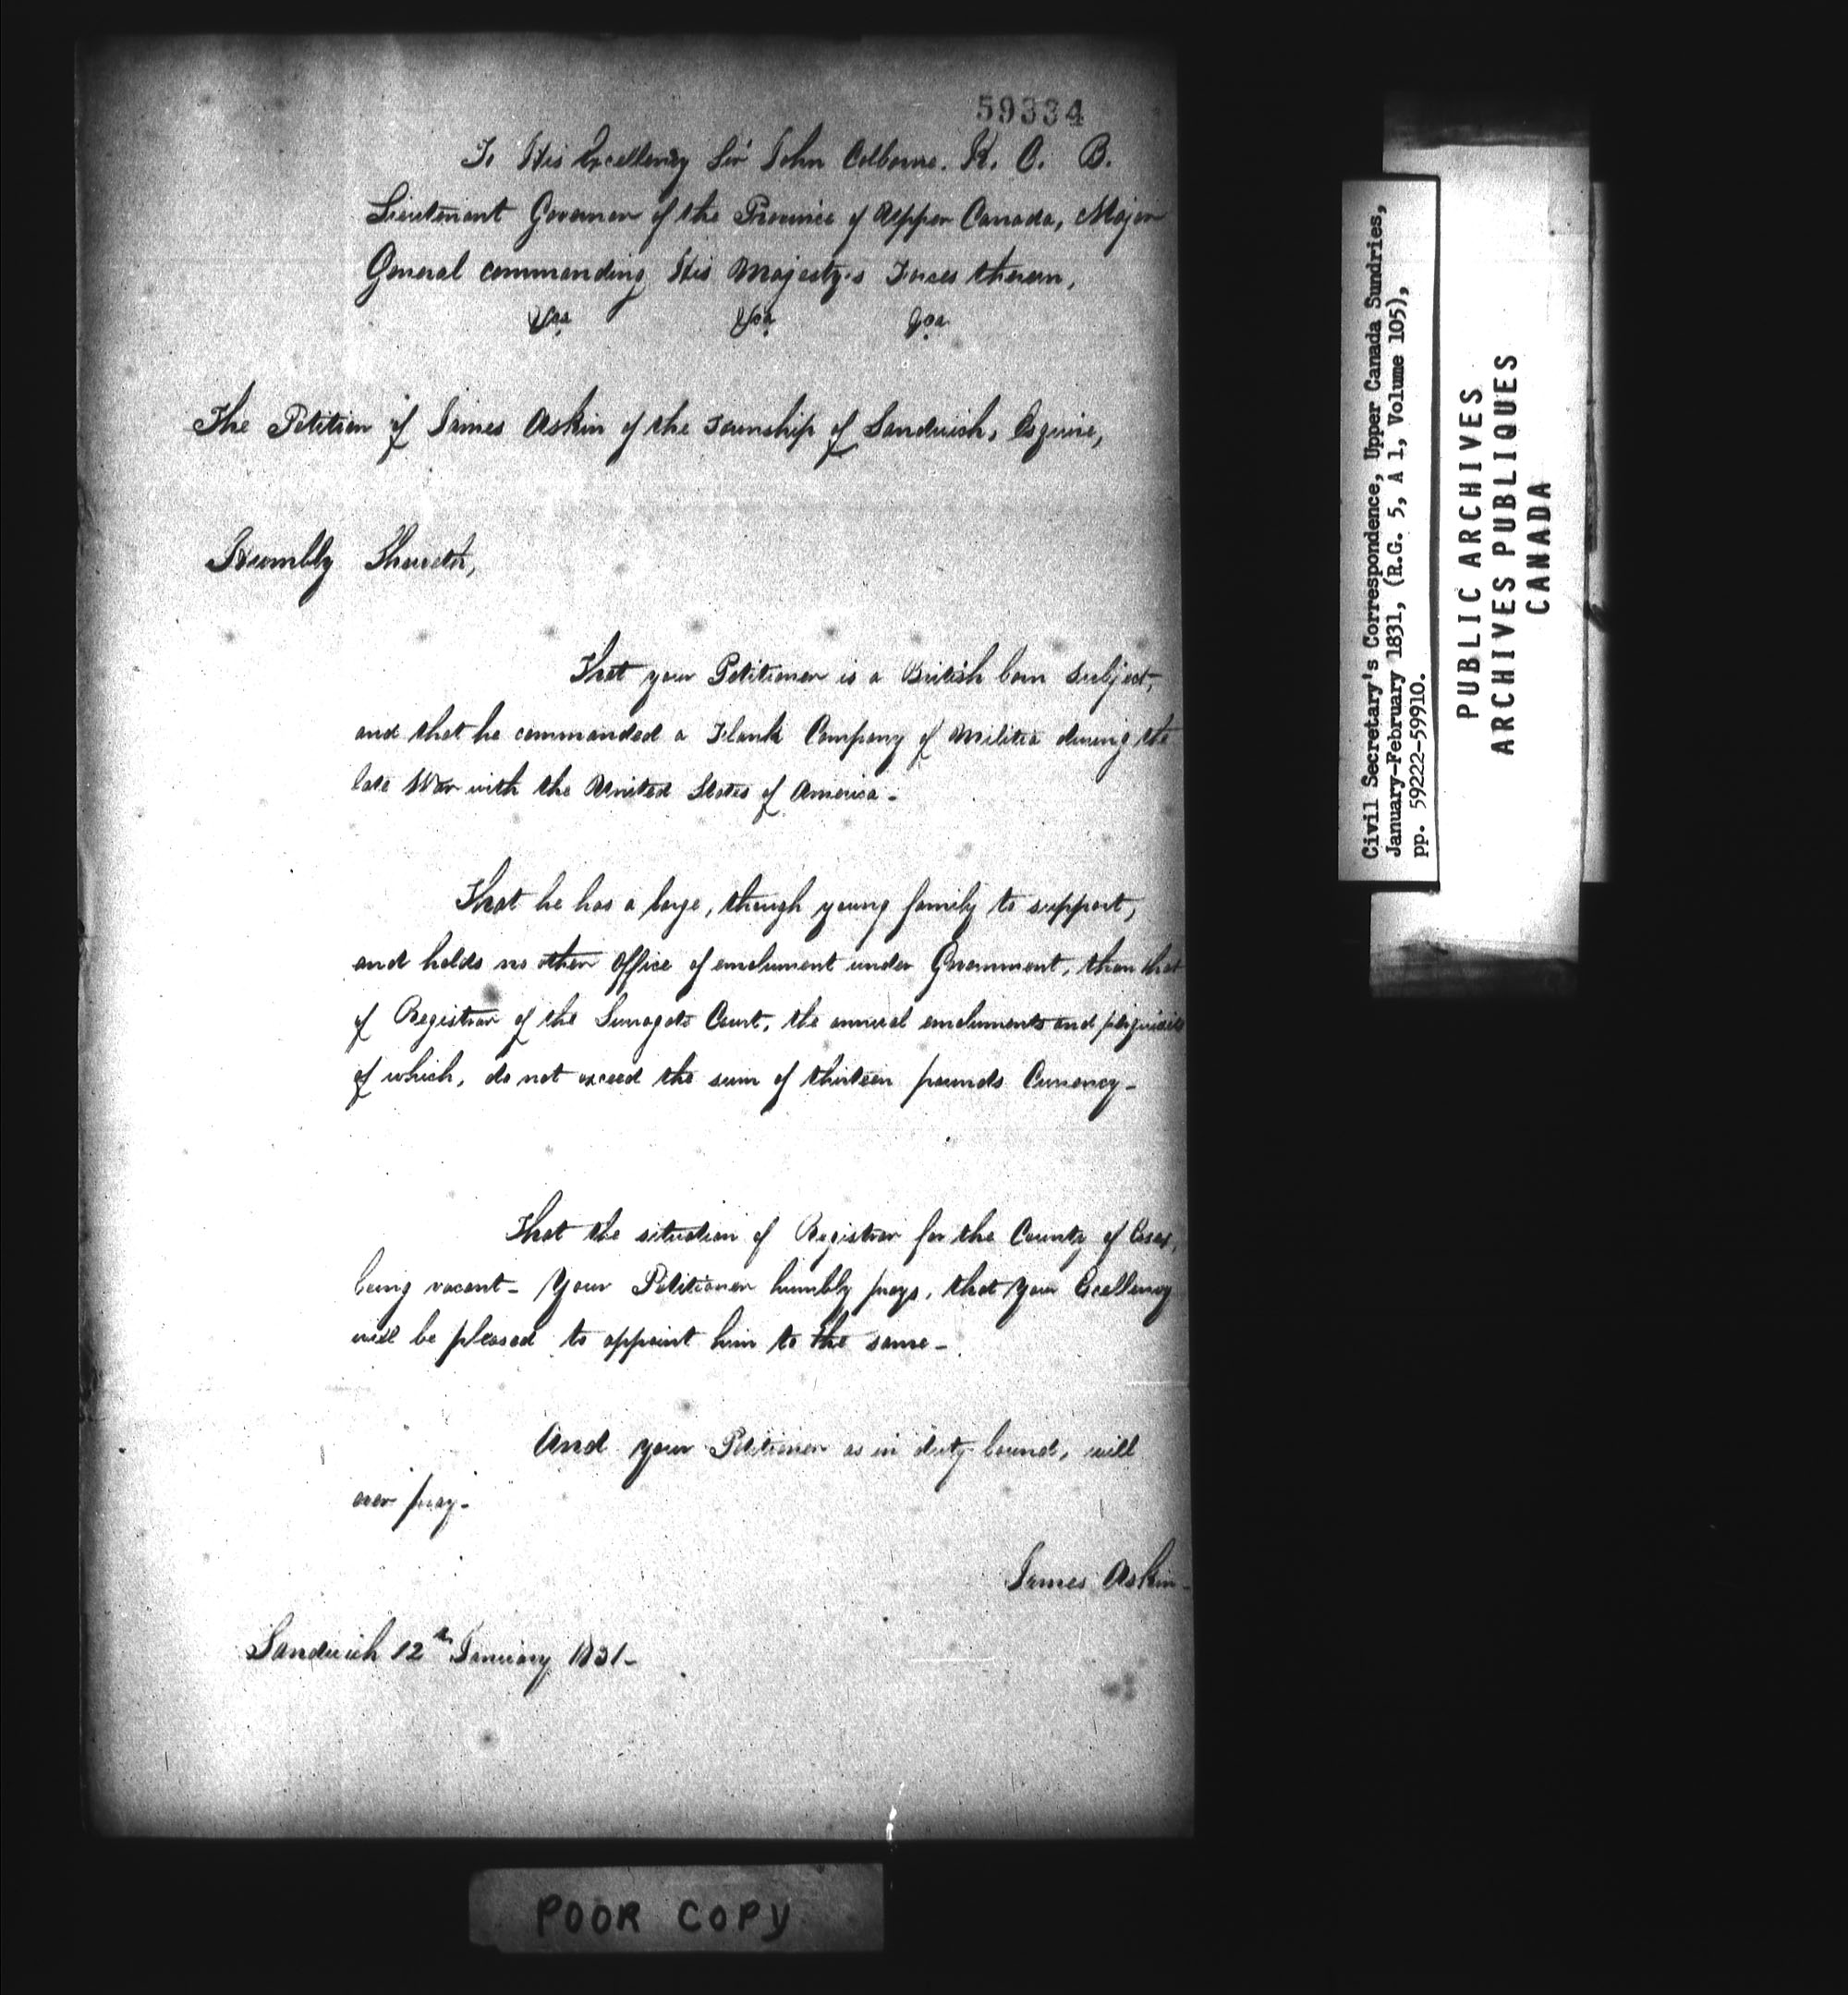 59334
To His Excellency Sir John Colborne. K. C. B.
Lieutenant Governor of the Province of Upper Canada, Major
General commanding His Majesty's Forces therein,
&ca &ca &ca
The Petition of James Askin of the Township of Sandwich, Esquire,
Humbly Sheweth,
That your Petitioner is a British born Subject,
and that he commanded a Flank Company of Militia during the
late War with the United States of America -
That he has a large, though young family to support,
and holds no other Office of emolument under Government, than that
of Registrar of the Surrogate Court, the annual emoluments and perquisites
of which, do not exceed the sum of thirteen pounds Currency -
That the situation of Registrar for the County of Essex,
being vacant - Your Petitioner humbly prays, that Your Excellency
will be pleased to appoint him to the same -
And your Petitioner as in duty bound, will
ever pray -
James Askin -
Sandwich 12th January 1831 -
POOR COPY
Civil Secretary's Correspondence, Upper Canada Sundries,
January-February 1831, (R.G. 5, A 1, Volume 105),
pp. 59222-59910.
PUBLIC ARCHIVES
ARCHIVES PUBLIQUES
CANADA